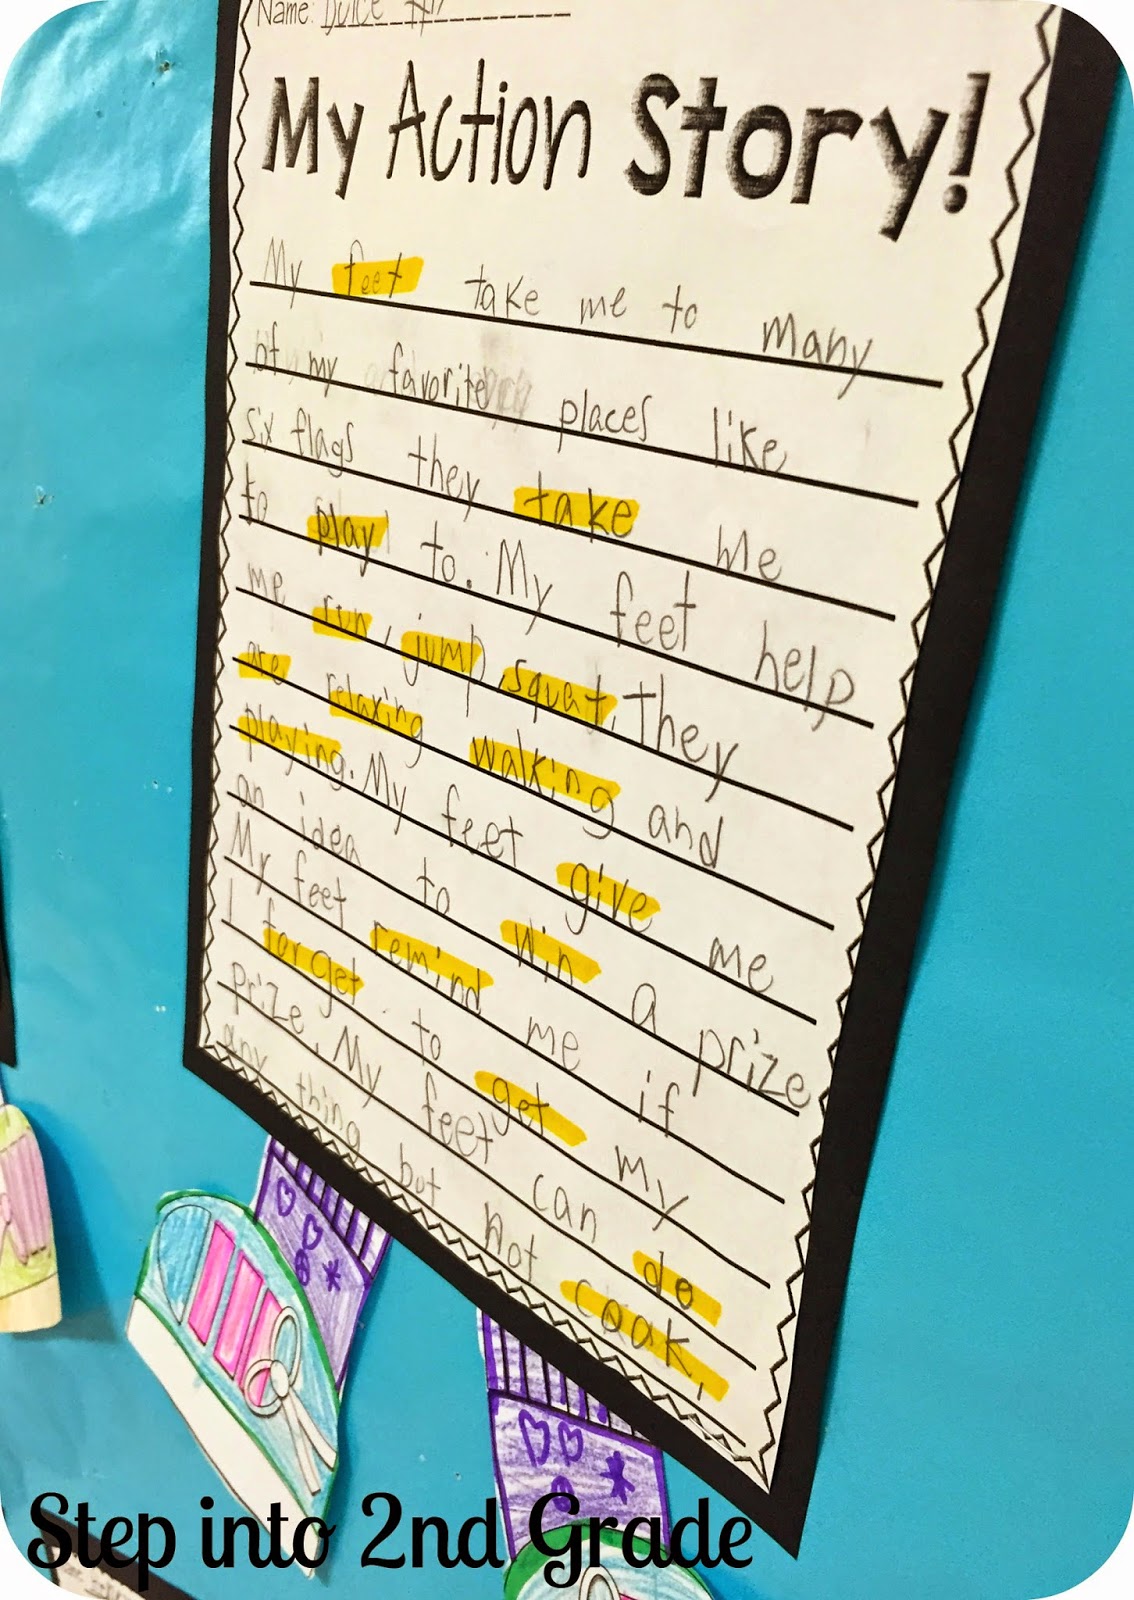 Name: Dulce #17
My Action Story!
My feet take me to many
of my favorite places like
six flags they take me
to play to. My feet help
me run, jump, squat, They
are relaxing walking and
playing. My feet give me
an idea to win a prize
My feet remind me if
I forget to get my
prize. My feet can do
any thing but not coak,
Step into 2nd Grade